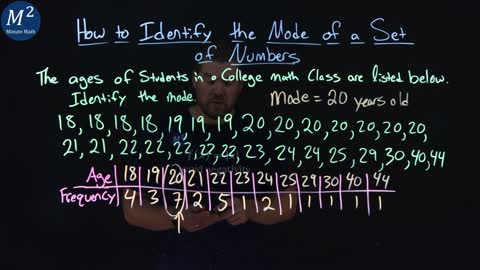 M²
Minute Math
How to Identify the Mode of a Set
of Numbers
The ages of Students in a College math Class are listed below.
Identify the mode. Mode = 20 years old
18, 18, 18, 18, 19, 19, 19, 20, 20, 20, 20, 20, 20, 20,
21, 21, 22, 22, 22, 22, 22, 23, 24, 24, 25, 29, 30, 40, 44
Age 18 19 20 21 22 23 24 25 29 30 40 44
Frequency 4 3 7 2 5 1 2 1 1 1 1 1